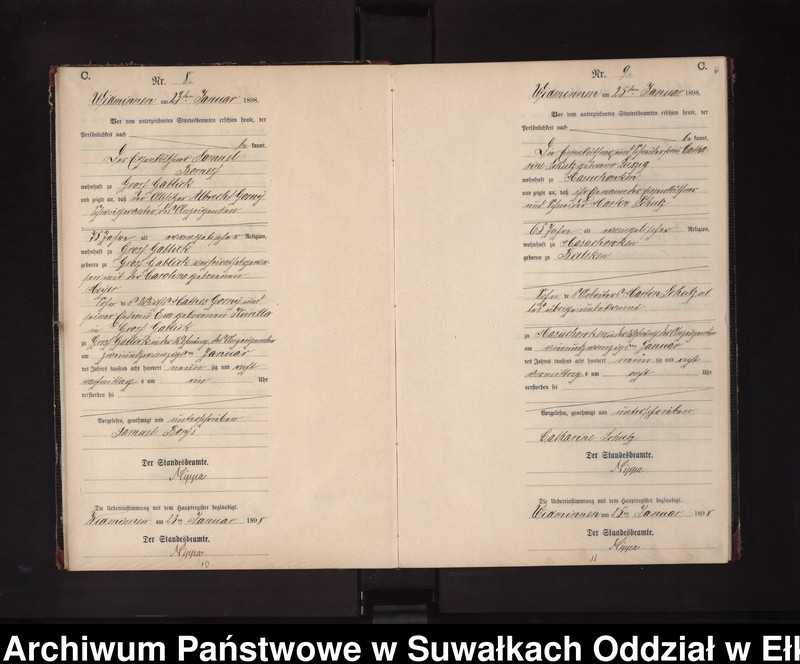 C.
Nr. 8.
Widminnen am 24ten Januar 1898.
Vor dem unterzeichneten Standesbeamten erschien heute, der
Persönlichkeit nach
be kannt,
Der Eigenkäthner Samuel
wohnhaft zu Groß Gablick
und zeigte an, daß der Altsitzer Albrecht Gorny
Schwiegervater des Anzeigenden
78 Jahre alt evangelischer Religion,
wohnhaft zu Groß Gablick
geboren zu Groß Gablick
mit der Caroline geborenen
Sohn des
seiner Ehefrau Eva geborenen
in Groß Gablick
zu Groß Gablick in der Wohnung des Anzeigenden
am zweiundzwanzigsten Januar
des Jahres tausend acht hundert neun zig und acht
nachmittags um ein Uhr
verstorben sei
Vorgelesen, genehmigt und unterschrieben
Samuel
Der Standesbeamte.
Nippa
Die Uebereinstimmung mit dem Hauptregister beglaubigt.
Widminnen am 24ten Januar 1898
Der Standesbeamte.
Nippa
10
C.
6
Nr. 9.
Widminnen am 25ten Januar 1898.
Vor dem unterzeichneten Standesbeamten erschien heute, der
Persönlichkeit nach
be kannt,
Die Eigenkäthner und Schneiderfrau Catha
rine Schulz geborene
wohnhaft zu Masuchowken
und zeigte an, daß ihr Ehemann der Eigenkäthner
und Schneider Martin Schulz
65 Jahre alt evangelischer Religion,
wohnhaft zu Masuchowken
geboren zu
Sohn des Arbeiters Martin Schulz
das übrige unbekannt
zu Masuchowken in der Wohnung der Anzeigenden
am vierundzwanzigsten Januar
des Jahres tausend acht hundert neun zig und acht
vormittags um acht Uhr
verstorben sei
Vorgelesen, genehmigt und unterschrieben
Catharine Schulz
Der Standesbeamte.
Nippa
Die Uebereinstimmung mit dem Hauptregister beglaubigt.
Widminnen am 25ten Januar 1898
Der Standesbeamte.
Nippa
11
Archiwum Państwowe w Suwałkach Oddział w Ełk